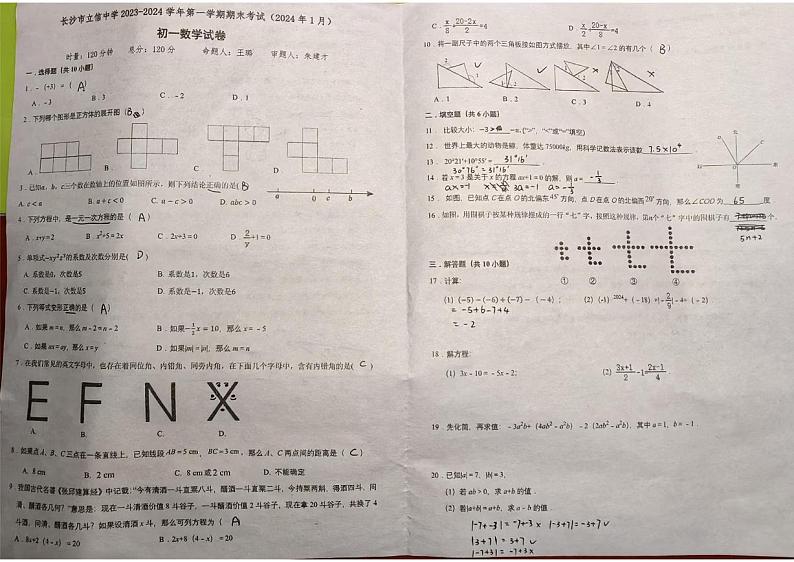 长沙市立信中学 2023-2024 学年第一学期期末考试（2024 年 1 月）
初一数学试卷
时量：120 分钟 总分：120 分 命题人：王璐 审题人：朱建才
一．选择题（共 10 小题）
1．-（+3）=（ A ）
A．-3 B．3 C．-2 D．1
2．下列哪个图形是正方体的展开图（ B ）
A. B. C. D.
3．已知a、b、c三个数在数轴上的位置如图所示，则下列结论正确的是( B )
A. c < a B. a + c < 0 C. a - c > 0 D. abc > 0
4．下列方程中，是一元一次方程的是（ A ）
A．x+y=2 B．x²+5=2x C．2x+3=0 D．2/y+1=0
5．单项式-xy²z³的系数及次数分别是( D )
A. 系数是0，次数是5 B. 系数是1，次数是6
C. 系数是-1，次数是5 D. 系数是-1，次数是6
6．下列等式变形正确的是（ A ）
A．如果 m=n，那么 m-2=n-2 B．如果-1/2x=10，那么 x=-5
C．如果 ax=ay，那么 x=y D．如果|m|=|n|，那么 m=n
7．在我们常见的英文字母中，也存在着同位角、内错角、同旁内角，在下面几个字母中，含有内错角的是( C )
E F N X
A. B. C. D.
8．如果点 A、B、C三点在一条直线上，已知线段 AB=5 cm，BC=3 cm，那么 A、C 两点间的距离是（ C ）
A. 8 cm B. 2 cm C. 8 cm 或 2 cm D. 不能确定
9．我国古代名著《张邱建算经》中记载：“今有清酒一斗直粟八斗，醑酒一斗直粟二斗，今持粟两斛，得酒四斗，问
清、醑酒各几何？”意思是：现在一斗清酒价值 8 斗谷子，一斗醑酒价值 2 斗谷子，现在拿 20 斗谷子，共换了 4
斗酒，问清，醑酒各几斗？如果设清酒 x 斗，那么可列方程为（ A ）
A．8x+2（4-x）=20 B．2x+8（4-x）=20
C．x/8+(20-2x)/2=4 D．x/2+(20-x)/8=4
10．将一副尺子中的两个三角板按如图方式摆放，其中∠1=∠2 的有几个（ B ）
A．1 B．2 C．3 D．4
二．填空题（共 6 小题）
11．比较大小：-3 > -π.(“>”，“<”或“=”填空)
12．世界上最大的动物是鲸，体重达 75000kg，用科学记数法表示该数 7.5×10⁴
13．20°21′+10°55′= 31°16′
30°76′=31°16′
14．若 x=3 是关于 x 的方程 ax+1=0 的解，则 a= -1/3
ax=-1 3a=-1 a=-1/3
15．如图，已知点 C 在点 O 的北偏东45°方向，点 D 在点 O 的北偏西20°方向，那么∠COD 为 65 度
16．如图，用围棋子按某种规律摆成的一行“七”字，按照这种规律，第n个“七”字中的围棋子有 个.
5n+2
① ② ③ ④
三．解答题（共 10 小题）
17．计算：
（1）（-5）-（-6）+（-7）-（-4）； （2）（-1）²⁰²⁴+（-18）×|-2/9|-4÷（-2）
= -5+6-7+4
= -2
18．解方程：
（1）3x-10=-5x-2； （2）(3x+1)/2-1=(2x-1)/4.
19．先化简，再求值：-3a²b+（4ab²-a²b）-2（2ab²-a²b），其中 a=1，b=-1．
20．已知|a|=7，|b|=3，
（1）若 ab>0，求 a+b 的值．
（2）若|a+b|=a+b，求 a-b 的值．
|-7+-3|=-7+-3 × |-3+7|=-3+7 √
|3+7|=3+7 √
|-7+3|=-7+3×